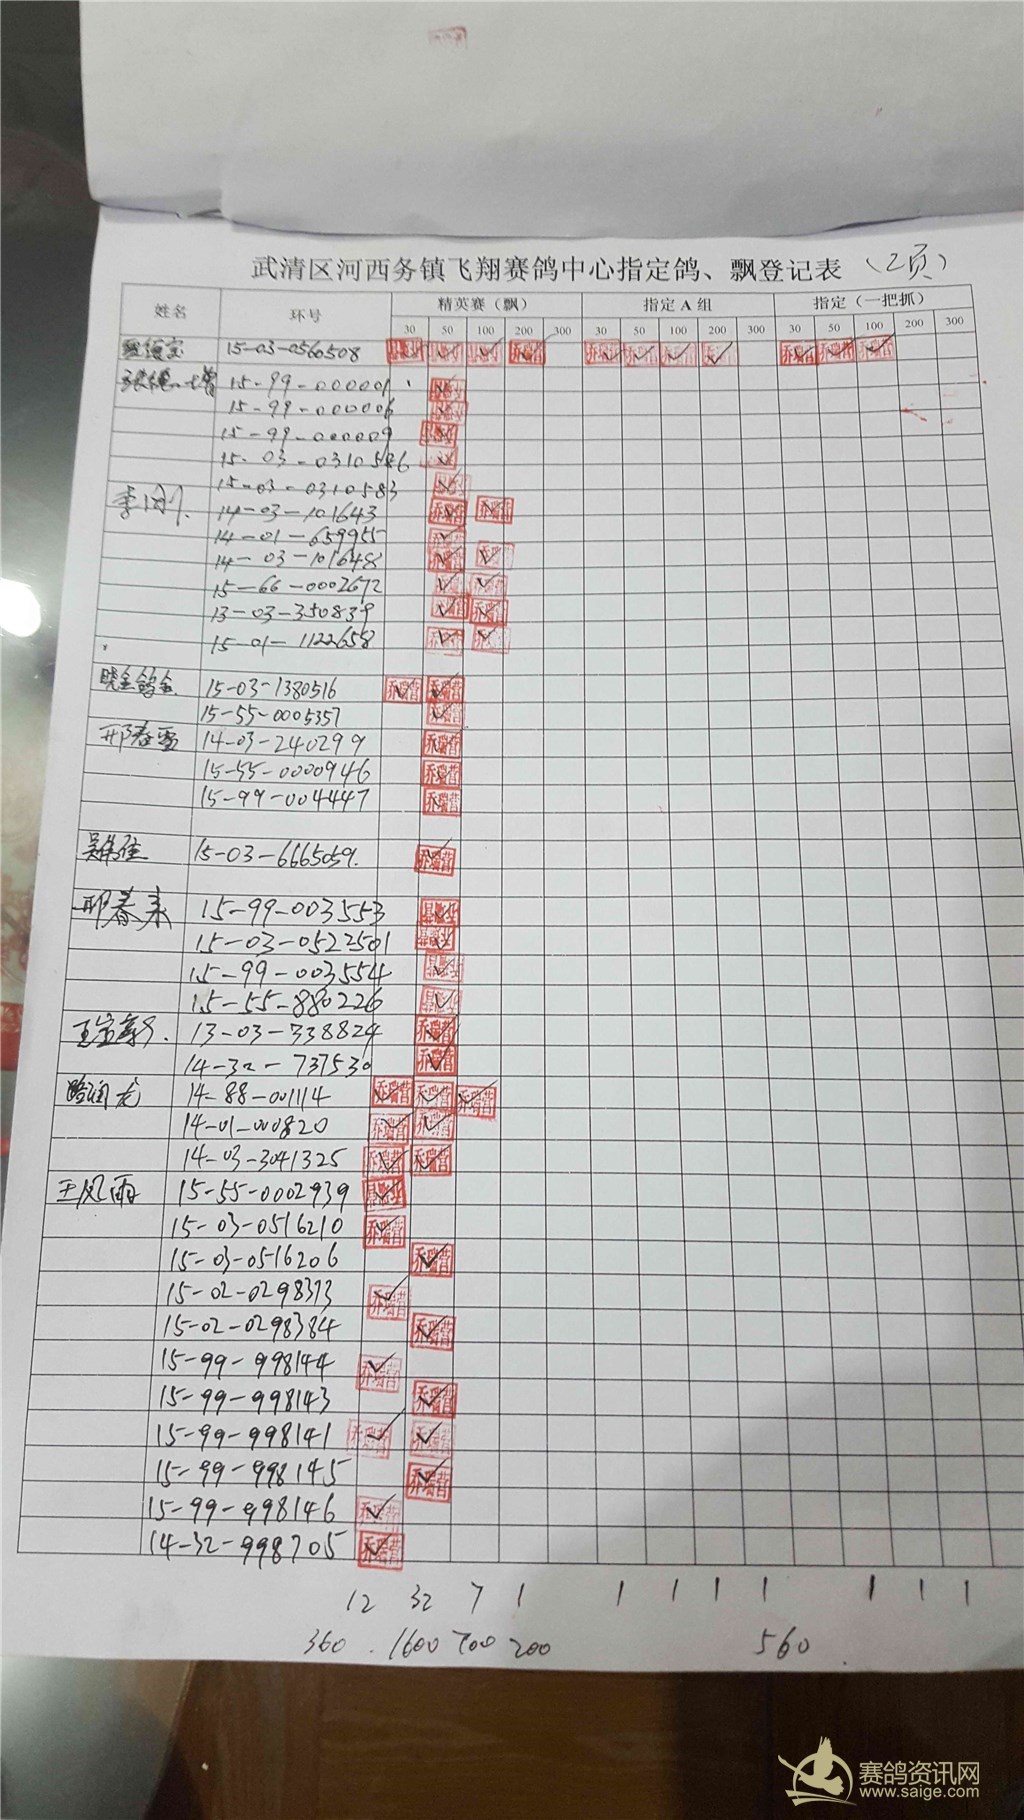 武清区河西务镇飞翔赛鸽中心指定鸽、飘登记表（2页）
姓名 环号 精英赛（飘） 指定A组 指定（一把抓）
30 50 100 200 300 30 50 100 200 300 30 50 100 200 300
15-03-0560508
15-99-000001
15-99-000006
15-99-000009
15-03-0310586
15-03-0310583
李 14-03-101643
14-01-659955
14-03-101648
15-66-0002672
13-03-350839
15-01-1122658
15-03-1380516
15-55-0005357
邢春雷 14-03-240299
15-55-0000946
15-99-004447
15-03-6665059.
邢春来 15-99-003553
15-03-0522501
15-99-003554
15-55-880226
13-03-338824
14-32-737530
14-88-001114
14-01-000820
14-03-3041325
王凤雨 15-55-0002939
15-03-0516210
15-03-0516206
15-02-0298373
15-02-0298384
15-99-998144
15-99-998143
15-99-998141
15-99-998145
15-99-998146
14-32-998705
12 32 7 1 1 1 1 1 1 1 1
360 . 1600 700 200 560
赛鸽资讯网
www.saige.com